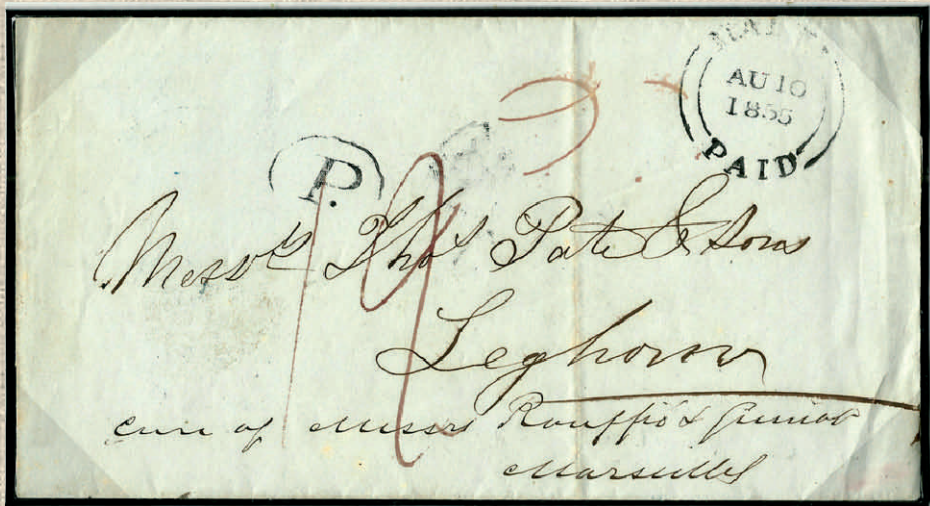 AU 10
1855
PAID
P.
Messrs Thos Pate & Sons
Leghorn
care of Messrs & Junior
Marseilles